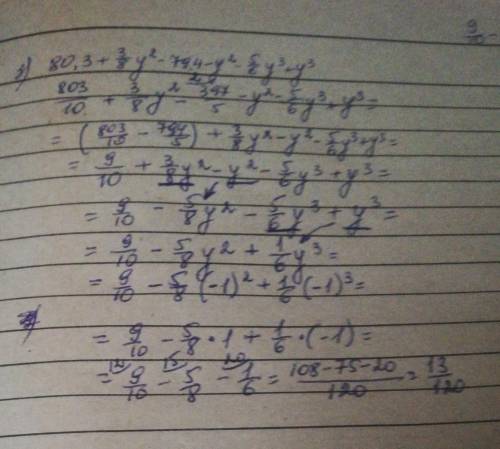 9/10 =
3) 80,3 + 3/8 y² - 79,4 - y² - 5/6 y³ + y³
803/10 + 3/8 y² - 397/5 - y² - 5/6 y³ + y³ =
= (803/10 - 794/5) + 3/8 y² - y² - 5/6 y³ + y³ =
= 9/10 + 3/8 y² - y² - 5/6 y³ + y³ =
= 9/10 - 5/8 y² - 5/6 y³ + y³ =
= 9/10 - 5/8 y² + 1/6 y³ =
= 9/10 - 5/8 · (-1)² + 1/6 (-1)³ =
= 9/10 - 5/8 · 1 + 1/6 · (-1) =
= 9/10 - 5/8 - 1/6 = (108 - 75 - 20)/120 = 13/120